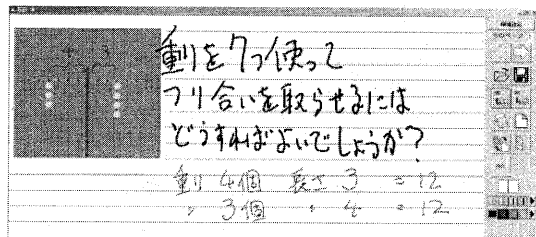 重りを7つ使って
つり合いを取らせるには
どうすればよいでしょうか?
重り 4個 長さ 3 = 12
〃 3個 〃 4 = 12